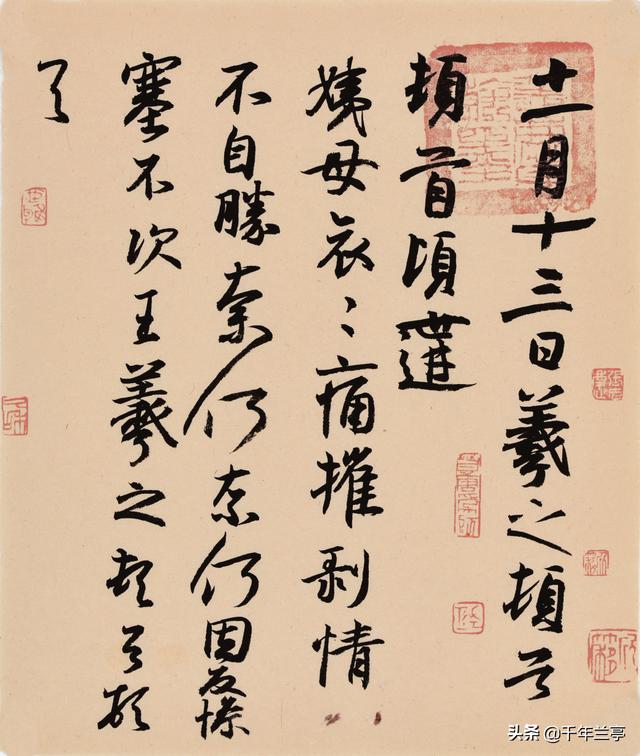 十一月十三日羲之頓首
頓首頃遘
姨母哀〻痛摧剥情
不自勝奈何奈何因反慘
塞不次王羲之頓首頓
首
头条 @千年兰亭